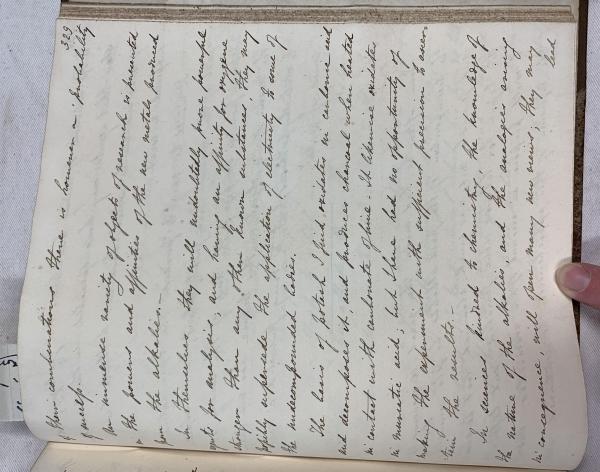 329
of their combinations there is however a probability
of success.
An immense variety of objects of research is presented
in the powers and affinities of the new metals produced
from the alkalies.—
In themselves they will undoubtedly prove powerful
agents for analysis; and having an affinity for oxygene
stronger than any other known substances, they may
possibly supersede the application of electricity to some of
the undecompounded bodies.
The basis of potash I find oxidates in carbonic acid
and decomposes it, and produces charcoal when heated
in contact with carbonate of lime. It likewise oxidates
in muriatic acid; but I have had no opportunity of
making the experiment with sufficient precision to ascer-
tain the results.—
In sciences kindred to chemistry, the knowledge of
the nature of the alkalies, and the analogies arising
in consequence, will open many new views; they may
lead